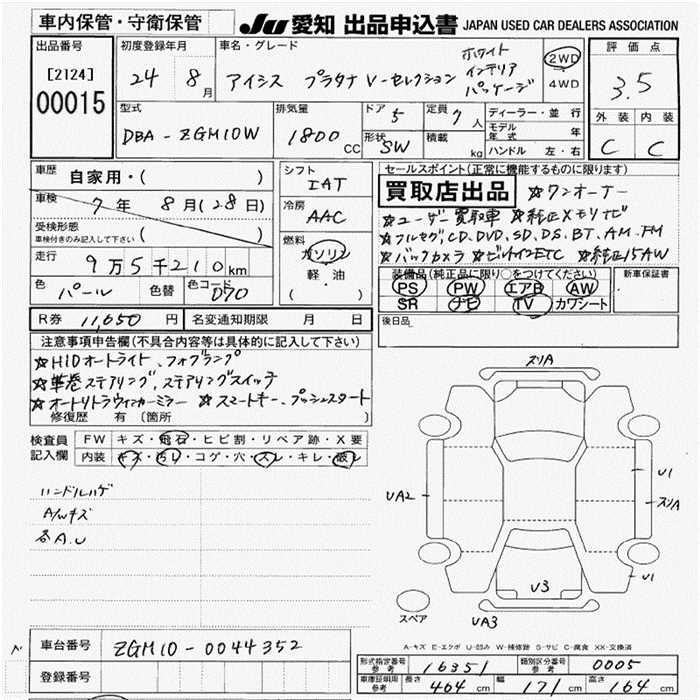 車内保管・守衛保管
JU 愛知 出品申込書 JAPAN USED CAR DEALERS ASSOCIATION
出品番号
[2124]
00015
初度登録年月
24 8月
車名・グレード
アイシス プラタナ V-セレクション
ホワイト
インテリア
パッケージ
2WD
4WD
評価点
3.5
外装 内装
C C
型式
DBA-ZGM10W
排気量
1800cc
ドア 5
形状 SW
定員 7人
積載 kg
ディーラー・並行
モデル年式 年
ハンドル 左・右
車歴 自家用・( )
車検 7年 8月(28日)
受検形態
車検付きのみ記入して下さい ( )
走行 9万5千210km
色 パール 色替 色コード 070
シフト
IAT
冷房
AAC
燃料
ガソリン
軽・油
( )
セールスポイント(正常に機能するものに限ります)
買取店出品 ☆ワンオーナー
☆ユーザー買取車 ☆純正メモリナビ
☆フルセグ,CD,DVD,SD,DS,BT,AM,FM
☆バックカメラ ☆ビルトインETC ☆純正15AW
装備品(純正品に限り○をつけてください)
PS PW エアB AW
SR ナビ TV カワシート
新車保証書
後日品
R券 11,650円 名変通知期限 月 日
注意事項申告欄(不具合内容等は具体的に記入して下さい)
☆HIDオートライト、フォグランプ
☆革巻ステアリング,ステアリングスイッチ
☆オートリトラウィンカーミラー ☆スマートキー、プッシュスタート
修復歴 有(箇所 )
検査員
記入欄
FW キズ・飛石・ヒビ割・リペア跡・X要
内装 キズ・汚れ・コゲ・穴・スレ・キレ・破レ
ハンドルハゲ
A/Wキズ
各A.U
スリA
UA2
U1
スリA
U1
U3
UA3
スペア
A-キズ E-エクボ U-凹み W-補修跡 S-サビ C-腐食 XX-交換済
車台番号 ZGM10-0044352
登録番号
型式指定番号 参考 16351 類別区分番号 参考 0005
車庫証明用 参考 長さ 464cm 幅 171cm 高さ 164cm